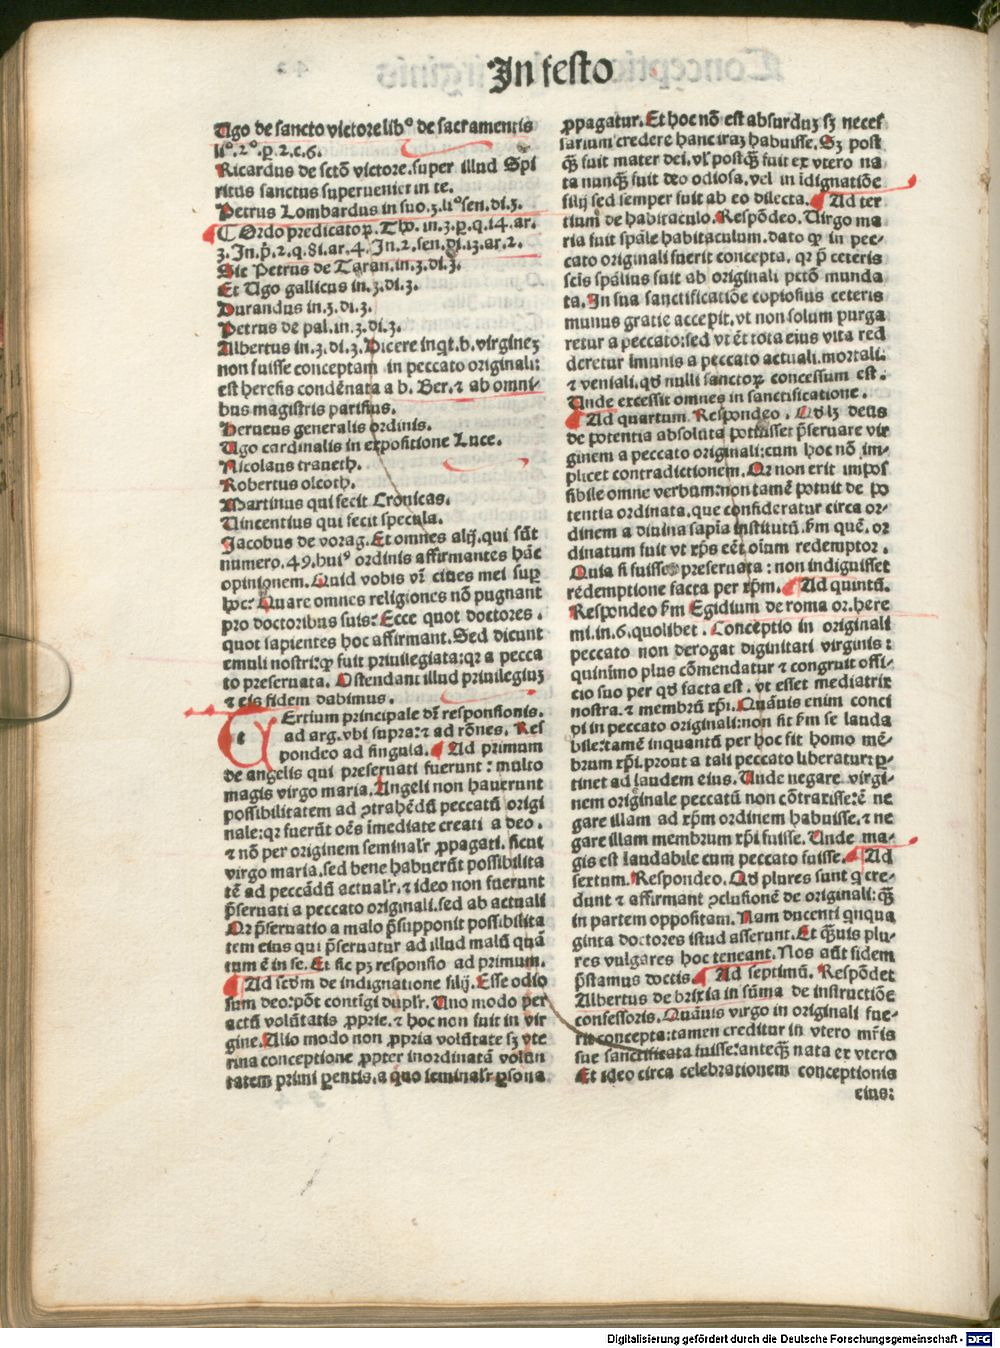 In festo
Ugo de sancto victore lib° de sacramentis
li°.2°.p.2.c.6.
Ricardus de sctō victore.super illud Spi
ritus sanctus superueniet in te.
Petrus Lombardus in suo.3.li°sen.di.3.
¶ Ordo predicatoꝝ. Tho. in.3.p.q.14.ar.
3. In.p̄.2.q.81.ar.4. In.2.sen.di.13.ar.2.
Sic Petrus de Taran.in.3.di.3.
Et Ugo gallicus in.3.di.3.
Durandus in.3.di.3.
Petrus de pal.in.3.di.3.
Albertus in.3.di.3.Dicere inqt.b.virginē
non fuisse conceptam in peccato originali:
est heresis condēnata a b. Ber.⁊ ab omni-
bus magistris parisius.
Herueus generalis ordinis.
Ugo cardinalis in expositione Luce.
Nicolaus traueth.
Robertus olcoth.
Martinus qui fecit Cronicas.
Uincentius qui fecit specula.
Jacobus de vorag. Et omnes alij.qui sūt
numero.49.huiꝰ ordinis affirmantes hāc
opinionem. Quid vobis vr̄ ciues mei suꝑ
hoc? Quare omnes religiones nō pugnant
pro doctoribus suis? Ecce quot doctores.
quot sapientes hoc affirmant. Sed dicunt
emuli nostri:ꝙ fuit priuilegiata:qr a pecca
to preseruata. Ostendant illud priuilegiuꝫ
⁊ eis fidem dabimus.
t Ertium principale dr̄ responsionis.
ad arg.vbi supra:⁊ ad rōnes. Res
pondeo ad singula. Ad primum
de angelis qui preseruati fuerunt: multo
magis virgo maria. Angeli non hauerunt
possibilitatem ad ꝯtrahēdū peccatū origi
nale:qr fuerūt oēs īmediate creati a deo.
⁊ nō per originem seminalr̄ ꝓpagati. sicut
virgo maria.sed bene habuerūt possibilita
tē ad peccādū actualr̄.⁊ ideo non fuerunt
p̄seruati a peccato originali.sed ab actuali
Qr p̄seruatio a malo p̄supponit possibilita
tem eius qui p̄seruatur ad illud malū quā
tum ē in se. Et sic pꝫ responsio ad primum.
Ad scdm de indignatione filij. Esse odio
sum deo:pōt contīgi duplr̄. Uno modo per
actū volūtatis ꝓprie.⁊ hoc non fuit in vir
gine. Alio modo non ꝓpria volūtate sꝫ vte
rina conceptione ꝓpter inordinatā volun
tatem primi ꝑentis.a quo seminalr̄ ꝑsona
ꝓpagatur. Et hoc nō est absurduꝫ sꝫ neces
sarium credere hanc iraꝫ habuisse. Sꝫ post
ꝙ̄ fuit mater dei. vl postꝙ̄ fuit ex vtero na
ta nunꝙ̄ fuit deo odiosa.vel in īdignatiōe
filij sed semper fuit ab eo dilecta. Ad ter
tium de habitaculo. Respōdeo. Uirgo ma
ria fuit spāle habitaculum.dato ꝙ in pec-
cato originali fuerit concepta. qr p̄ ceteris
scīs spālius fuit ab originali pctō munda
ta. In sua sanctificatiōe copiosius ceteris
munus gratie accepit.vt non solum purga
retur a peccato:sed vt ēt tota eius vita red
deretur imunis a peccato actuali.mortali:
⁊ veniali.qd nulli sanctoꝝ concessum est.
Unde excessit omnes in sanctificatione.
Ad quartum. Respondeo. Qd lꝫ deus
de potentia absoluta potuisset p̄seruare vir
ginem a peccato originali:cum hoc nō im-
plicet contradictionem. Qr non erit impos
sibile omne verbum:non tamē potuit de po
tentia ordinata.que consideratur circa or-
dinem a diuina sapīa institutū. fm quē. or
dinatum fuit vt xp̄s eēt oīum redemptor.
Quia si fuisset preseruata: non indiguisset
redemptione facta per xp̄m. Ad quintū.
Respondeo fm Egidium de roma or.here
mi.in.6.quolibet. Conceptio in originali
peccato non derogat diginitati virginis:
quinimo plus cōmendatur ⁊ congruit offi-
cio suo per qd facta est. vt esset mediatrix
nostra.⁊ membrū xp̄i. Quāuis enim conci
pi in peccato originali:non sit fm se lauda
bile:tamē inquantū per hoc fit homo mē-
brum xp̄i.prout a tali peccato liberatur:ꝑ-
tinet ad laudem eius. Unde negare virgi-
nem originale peccatū non cōtraxisse:ē ne
gare illam ad xp̄m ordinem habuisse.⁊ ne
gare illam membrum xp̄i fuisse. Unde ma-
gis est laudabile cum peccato fuisse. Ad
sextum. Respondeo. Qd plures sunt q cre-
dunt ⁊ affirmant ꝯclusionē de originali:ꝙ̄
in partem oppositam. Nam ducenti qnqua
ginta doctores istud asserunt. Et ꝙ̄uis plu-
res vulgares hoc teneant. Nos aūt fidem
p̄stamus doctis. Ad septimū. Respōdet
Albertus de brixia in sūma de instructiōe
confessoris. Quāuis virgo in originali fue-
rit concepta:tamen creditur in vtero mr̄is
sue sanctificata fuisse:anteꝙ̄ nata ex vtero
Et ideo circa celebrationem conceptionis
eius:
Digitalisierung gefördert durch die Deutsche Forschungsgemeinschaft - DFG